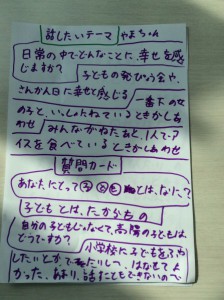 話したいテーマ やまちゃん
日常の中でどんなことに、幸せを感
じますか？ 子どもの発ぴょう会や、
さんかん日に幸せと感じる 一番下の女
の子と、いっしょねているときかしあ
わせ みんながねたあと、1人でア
イスを食べているときかしあわせ
質問カード
あなたにとって子どもとは、なに、？
子どもとは、たからもの
自分の子どもじゃなくて、高陽の子どもは
どうですか？ 小学校に子どもをみや
したいとかで
かった、あまり、話すこともできないので